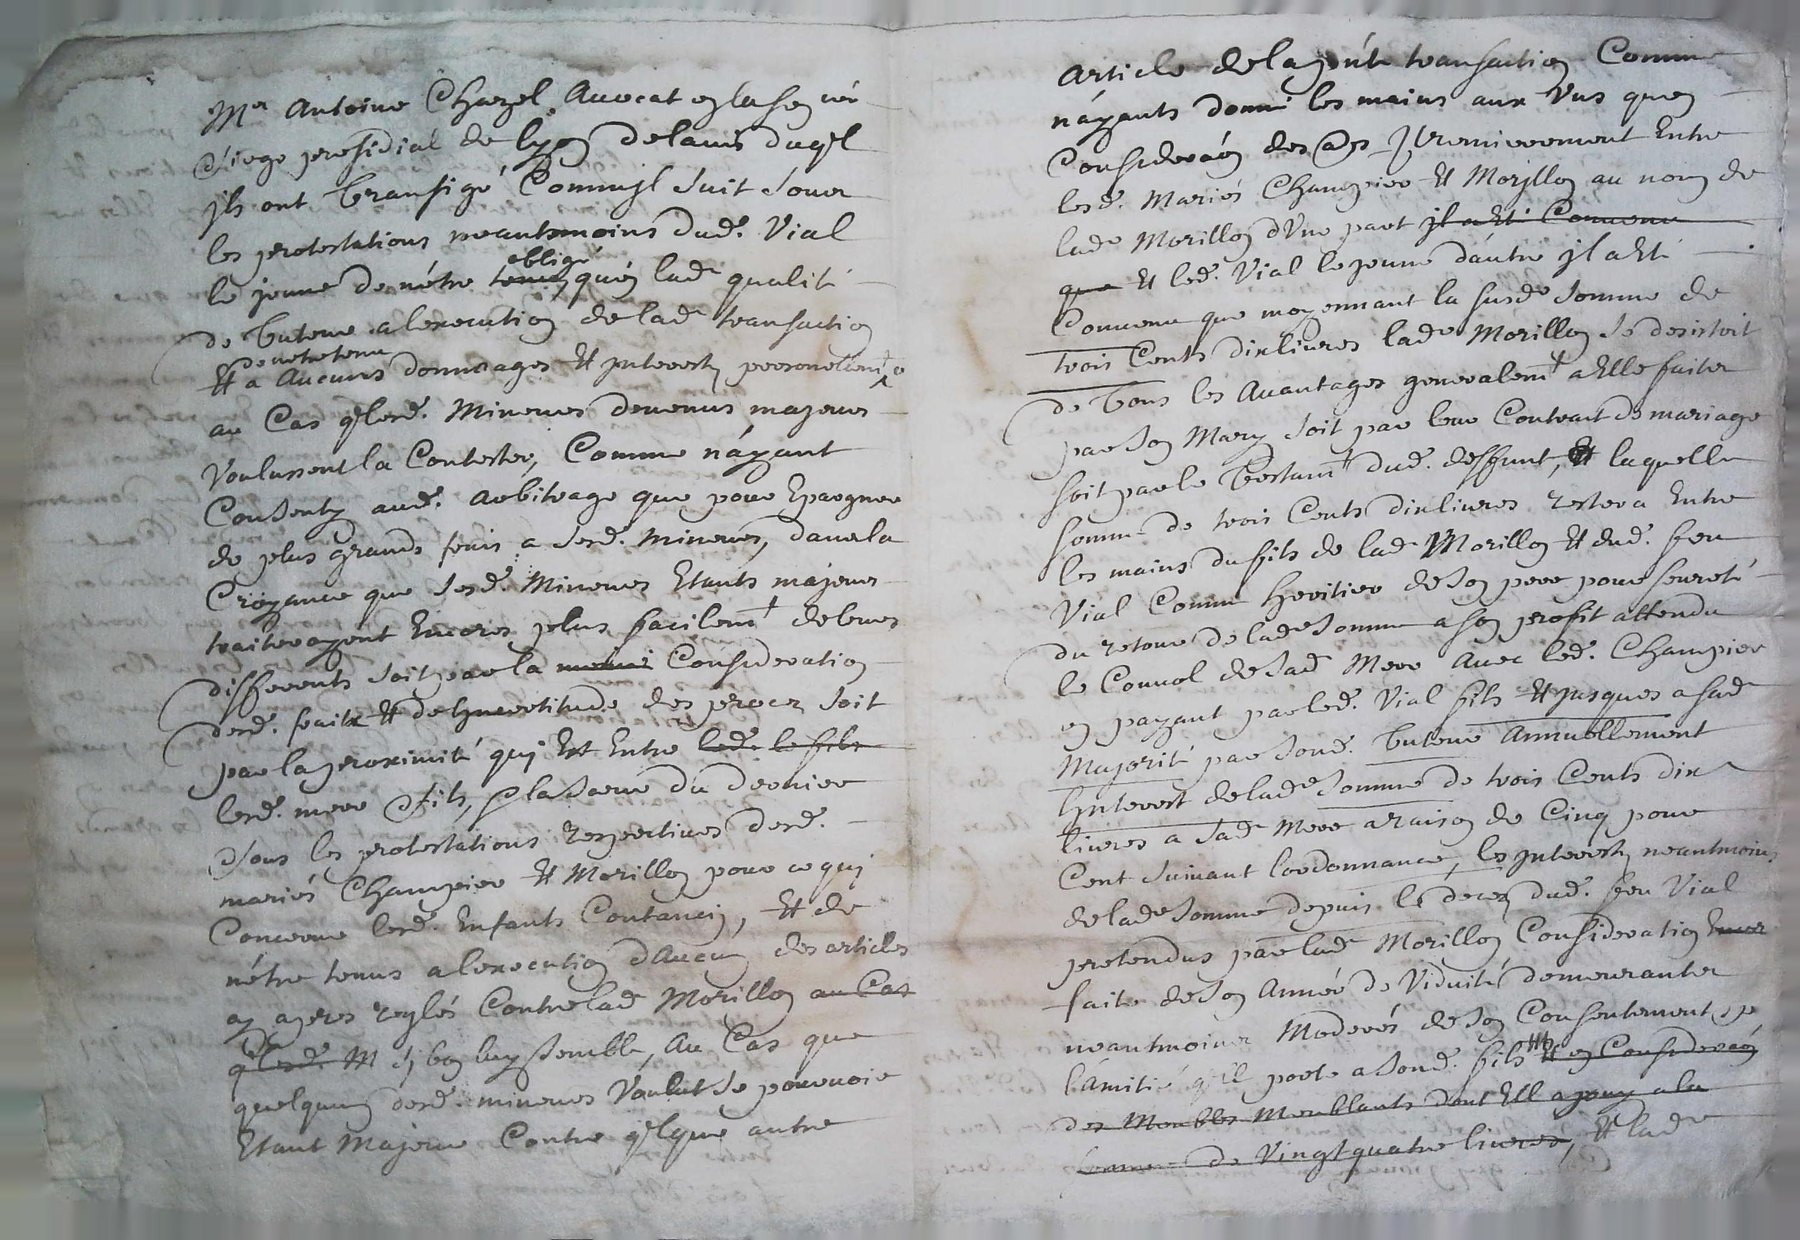 Mr Antoine Chazel Avocat en la sen
Siege presidial de lyon delavis duql
jls ont transigé Comm jl suit sour
les protestations neantmoins dud. Vial
le jeune de nétre obligé quen lad qualité
de tuteur a lexecution de lad transaction
Et a Aucuns dommages Et jnterests personellemt
au Cas q lesd. Mineurs devenus majeurs
Voulussent la Contester, Comme náyant
Consenty aud. arbitrage que pour Epargner
de plus grands frais a sesd. mineurs, dans la
Croyance que sesd. Mineurs Etants majeurs
traiteroyent Encores plus facilemt de leurs
differents soit par la Consideration
desd. frais Et de Lincertitude des procez soit
par la proximité quj Est Entre led. le fils
lesd. mere & fils, & la sœur du dernier
Sous les protestations respectives desd.
mariés Champier Et Morillon pour ce quj
Concerne lesd. Enfants Contancin, Et de
nétre tenus a lexecution dAucun des articles
cy apres reglés Contre lad Morillon au Cas
q lesd. Et sj bon luy semble, Au Cas que
quelquun desd. mineurs Voulut se pourvoir
Etant Majeur Contre qlque autre
article de la pnte transaction Comme
náyants donné les mains aux Vns quen
Consideraon des aes Premierement Entre
lesd. Mariés Champier Et Morjllon au nom de
lade Morillon dVne part jl a Eté Convenu
que Et led. Vial le jeune dautre jl a Eté
Convenu que moyennant la susde somme de
trois Cents dix livres lade Morillon se desistoit
de tous les Avantages generalemt a Elle faites
par son Mary soit par leur Contract de mariage
soit par le testamt dud. deffunt, Et laquelle
somme de trois Cents dix livres restera Entre
les mains du fils de lad Morillon Et dud. feu
Vial Comme heritier de son pere pour seureté
du retour de lade somme a son profit attendu
le Convol de sad Mere avec led. Champier
en payant par led. Vial fils Et jusques a sad
Majorité par sond. tuteur Annuellement
Linterest de lade somme de trois Cents dix
livres a sad Mere a raison de Cinq pour
Cent suivant lordonnance, les jnterests neantmoins
de lade somme depuis le decez dud. feu Vial
pretendus par lad Morillon Consideration
faite de son Année de Viduité demeurantes
neantmoins Moderés de son Consentement, &
lAmitié qll porte a sond. fils Et en Consideraon
des Meubles Meublants dont Ell a jouy a la
somme de Vingt quatre livres, Et lade